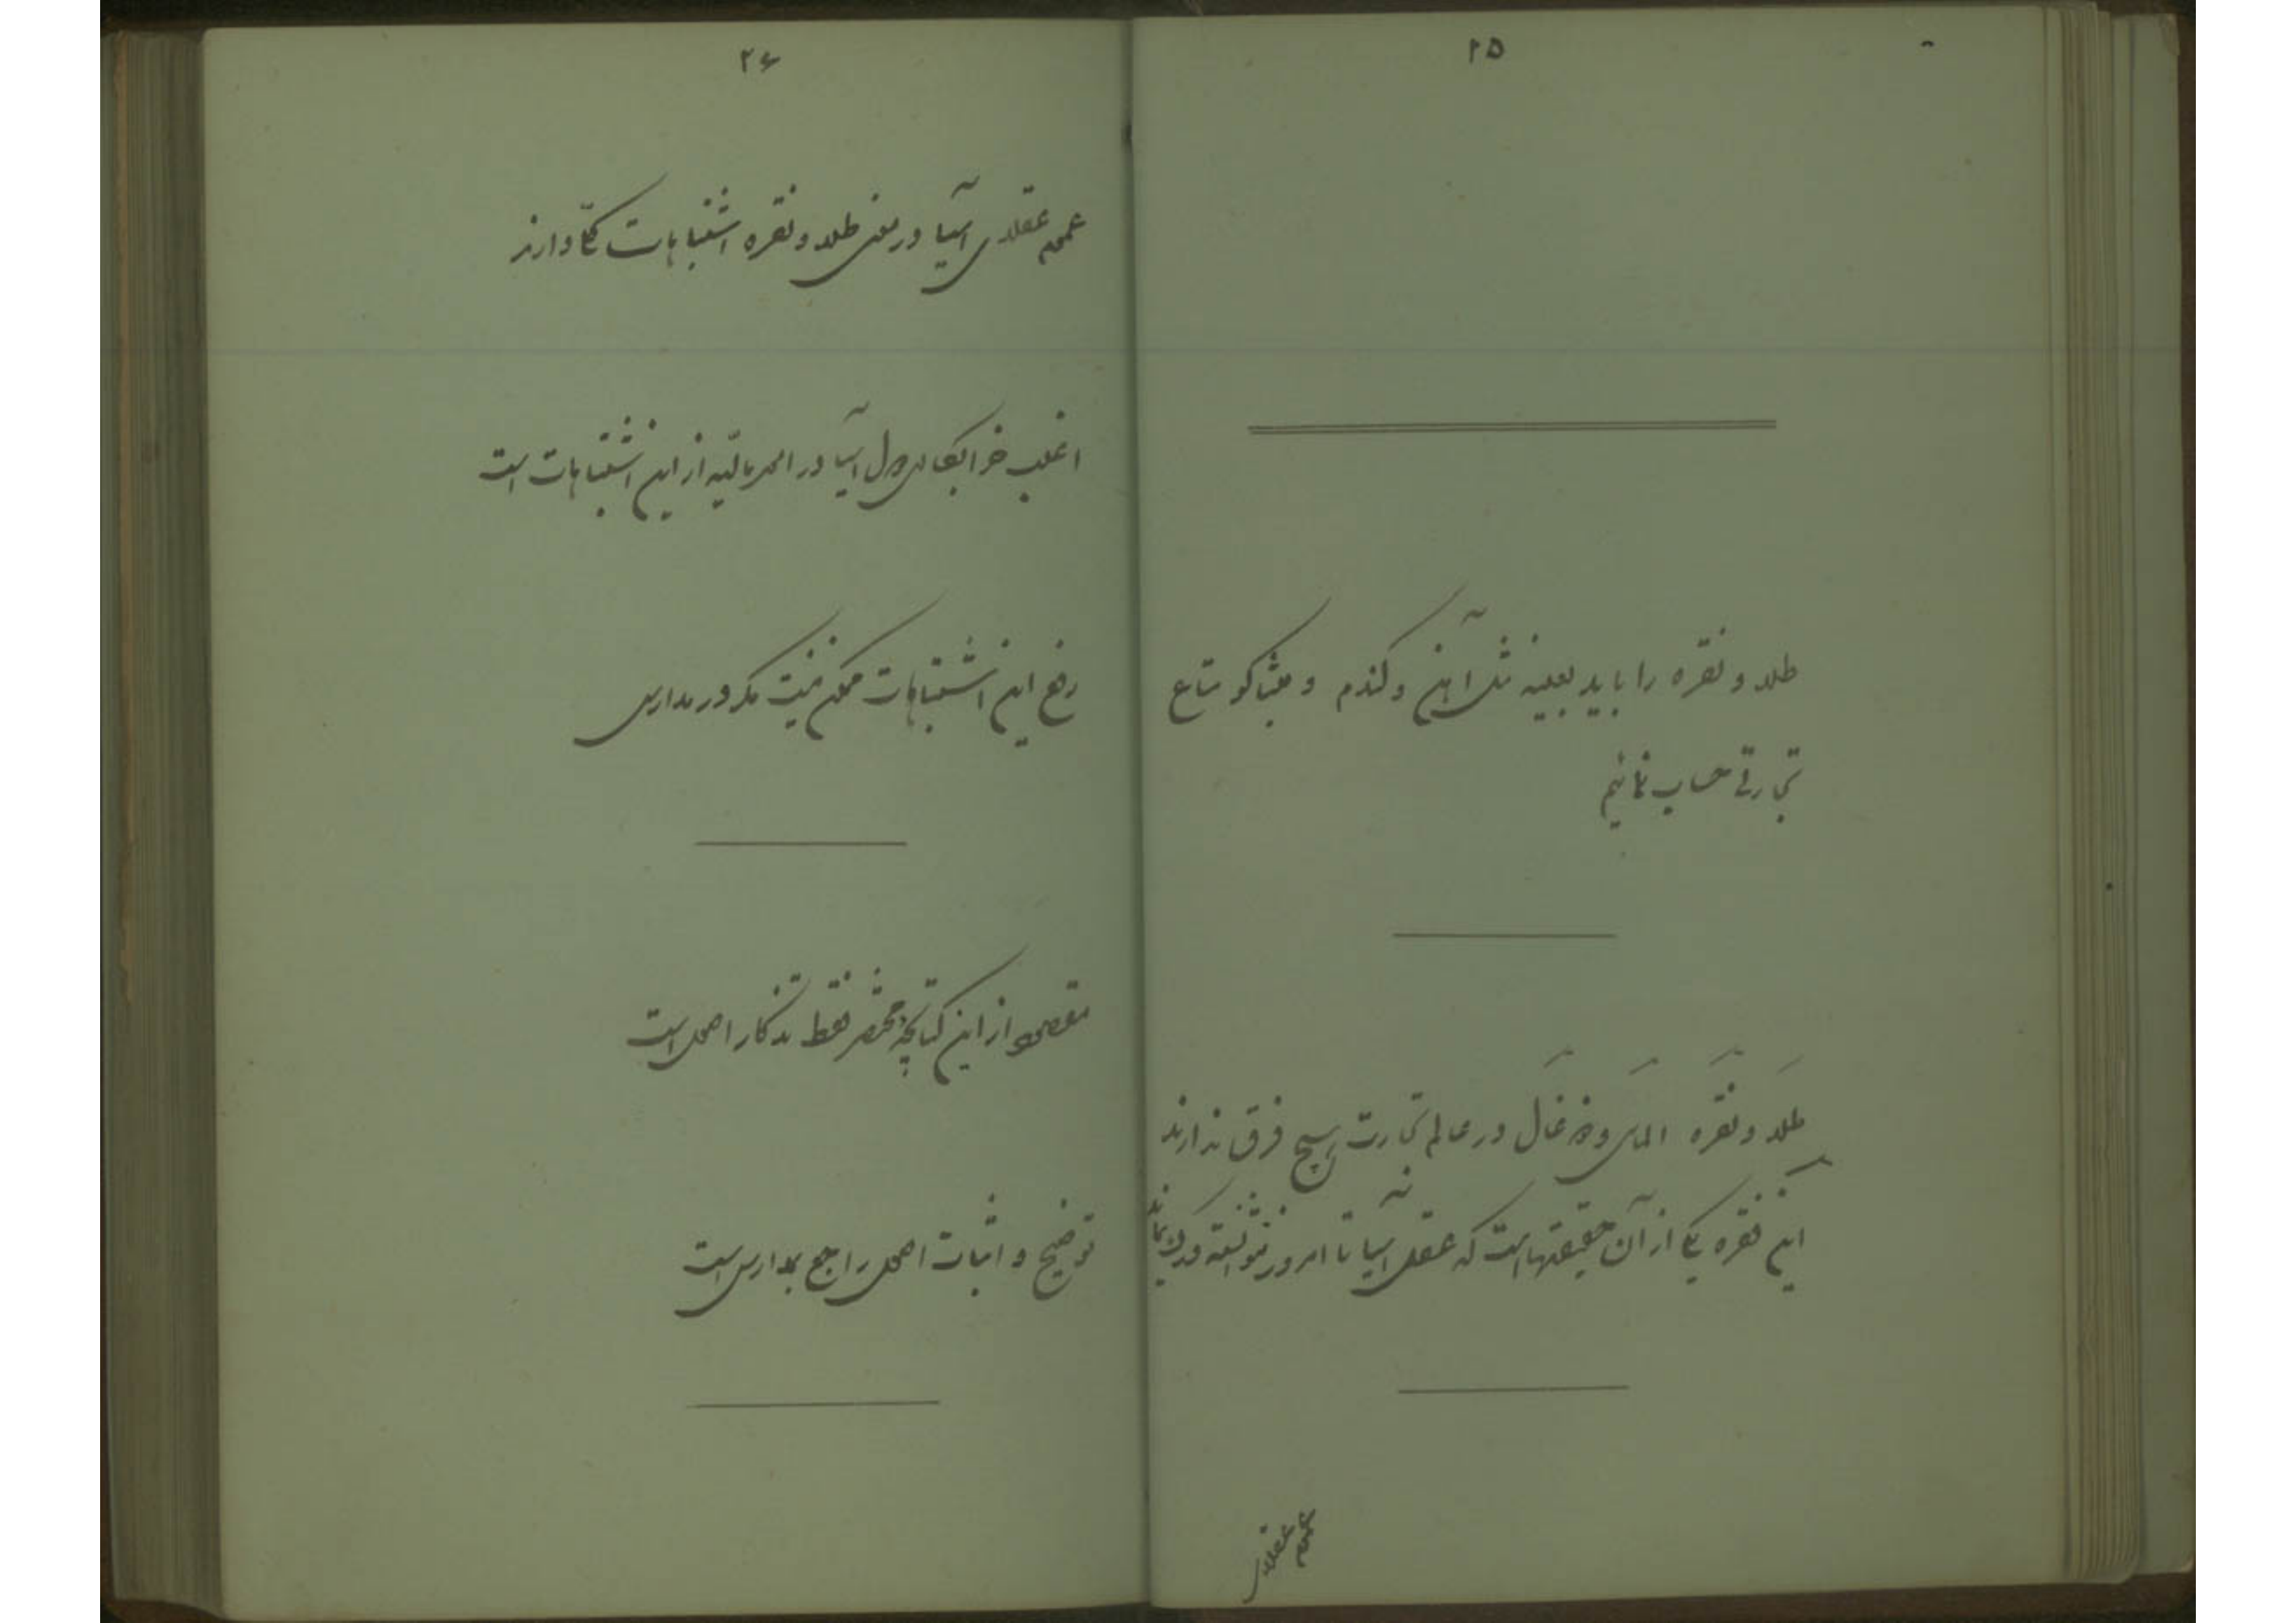 ۲۵
طلا و نقره را باید بعینه مثل آهن و گندم و تنباکو متاع
تجارتی حساب نمائیم
طلا و نقره الماس و ذغال در عالم تجارت هیچ فرق ندارند
این فقره یکی از آن حقیقتهاست که عقل آسیا تا امروز نتوانسته درک نماید
عموم عقلای
۲۶
عموم عقلای آسیا در معنی طلا و نقره اشتباهات کلی دارند
اغلب خرابیهای دول آسیا در امور مالیه از این اشتباهات است
رفع این اشتباهات ممکن نیست مگر در مدارس
مقصود از این کتابچه مختصر فقط تذکار اصول است
توضیح و اثبات اصول راجع بمدارس است